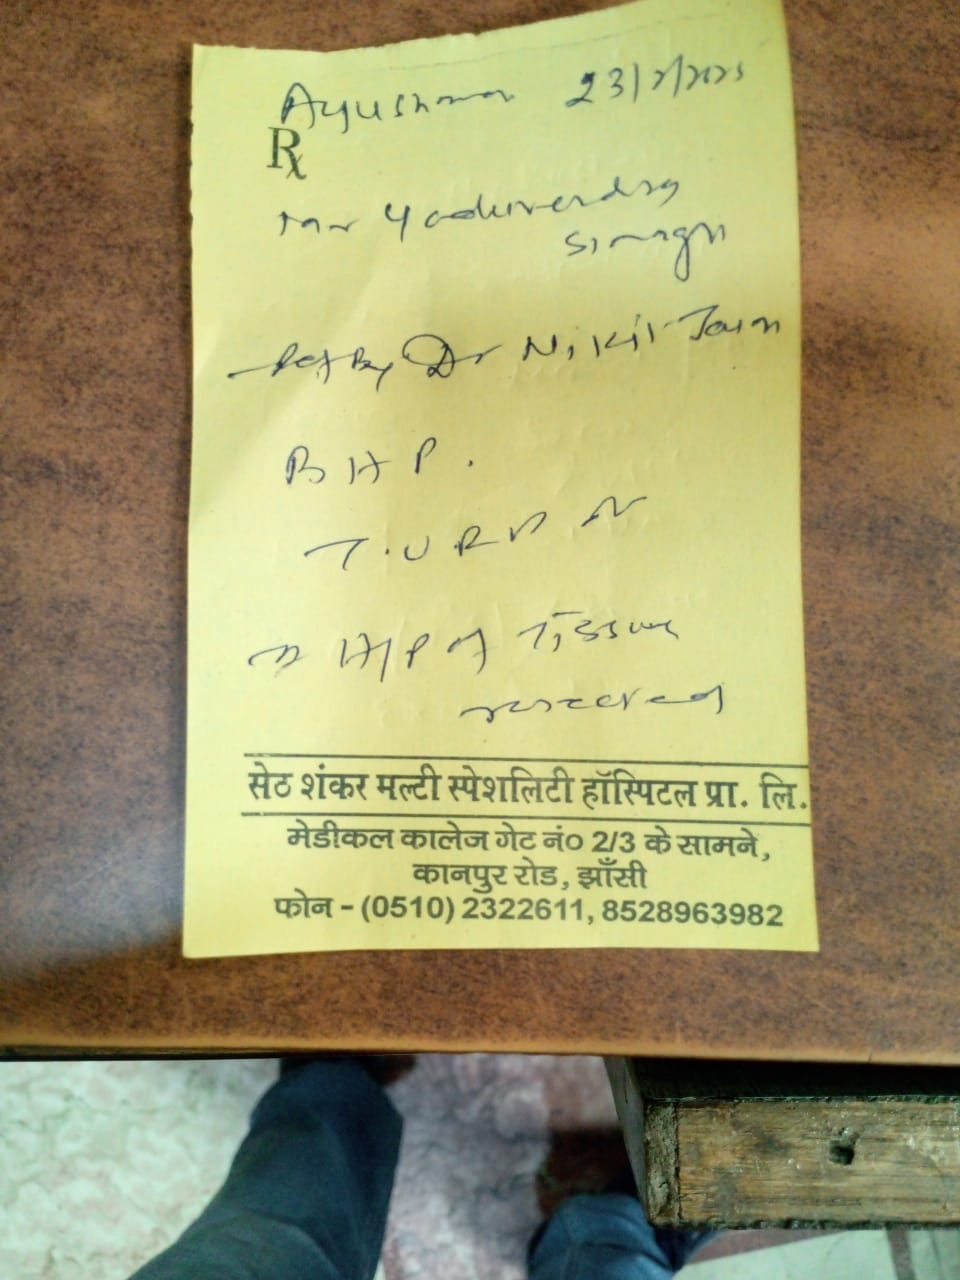 Ayushman 23/7/2025
Rx
Mr Yaduvendra
Singh
Ref By Dr Nikil Jain
B H P.
T.U.R.P
H/P of Tissue
received
सेठ शंकर मल्टी स्पेशलिटी हॉस्पिटल प्रा. लि.
मेडीकल कालेज गेट नं० 2/3 के सामने,
कानपुर रोड, झाँसी
फोन - (0510) 2322611, 8528963982